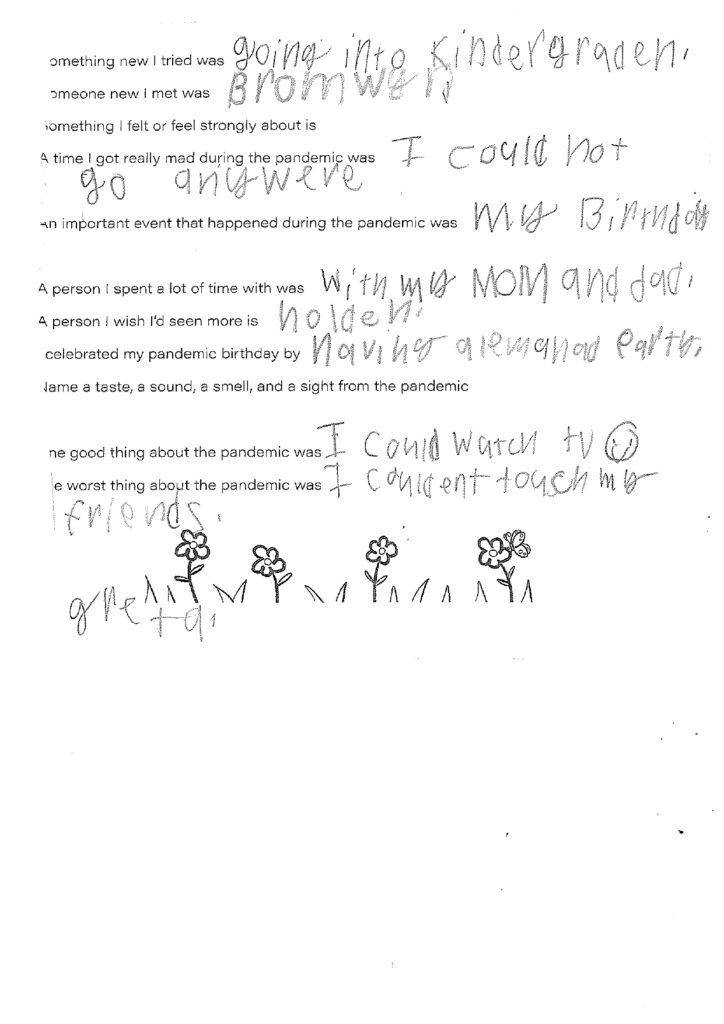 omething new I tried was going into Kindergraden.
omeone new I met was Bromwen
omething I felt or feel strongly about is
A time I got really mad during the pandemic was I could not
go anywere
An important event that happened during the pandemic was my Birthday
A person I spent a lot of time with was With my MOM and dad.
A person I wish I'd seen more is holden.
celebrated my pandemic birthday by having
Name a taste, a sound, a smell, and a sight from the pandemic
ne good thing about the pandemic was I Could watch tv
e worst thing about the pandemic was I couldent touch my
friends.
greta.